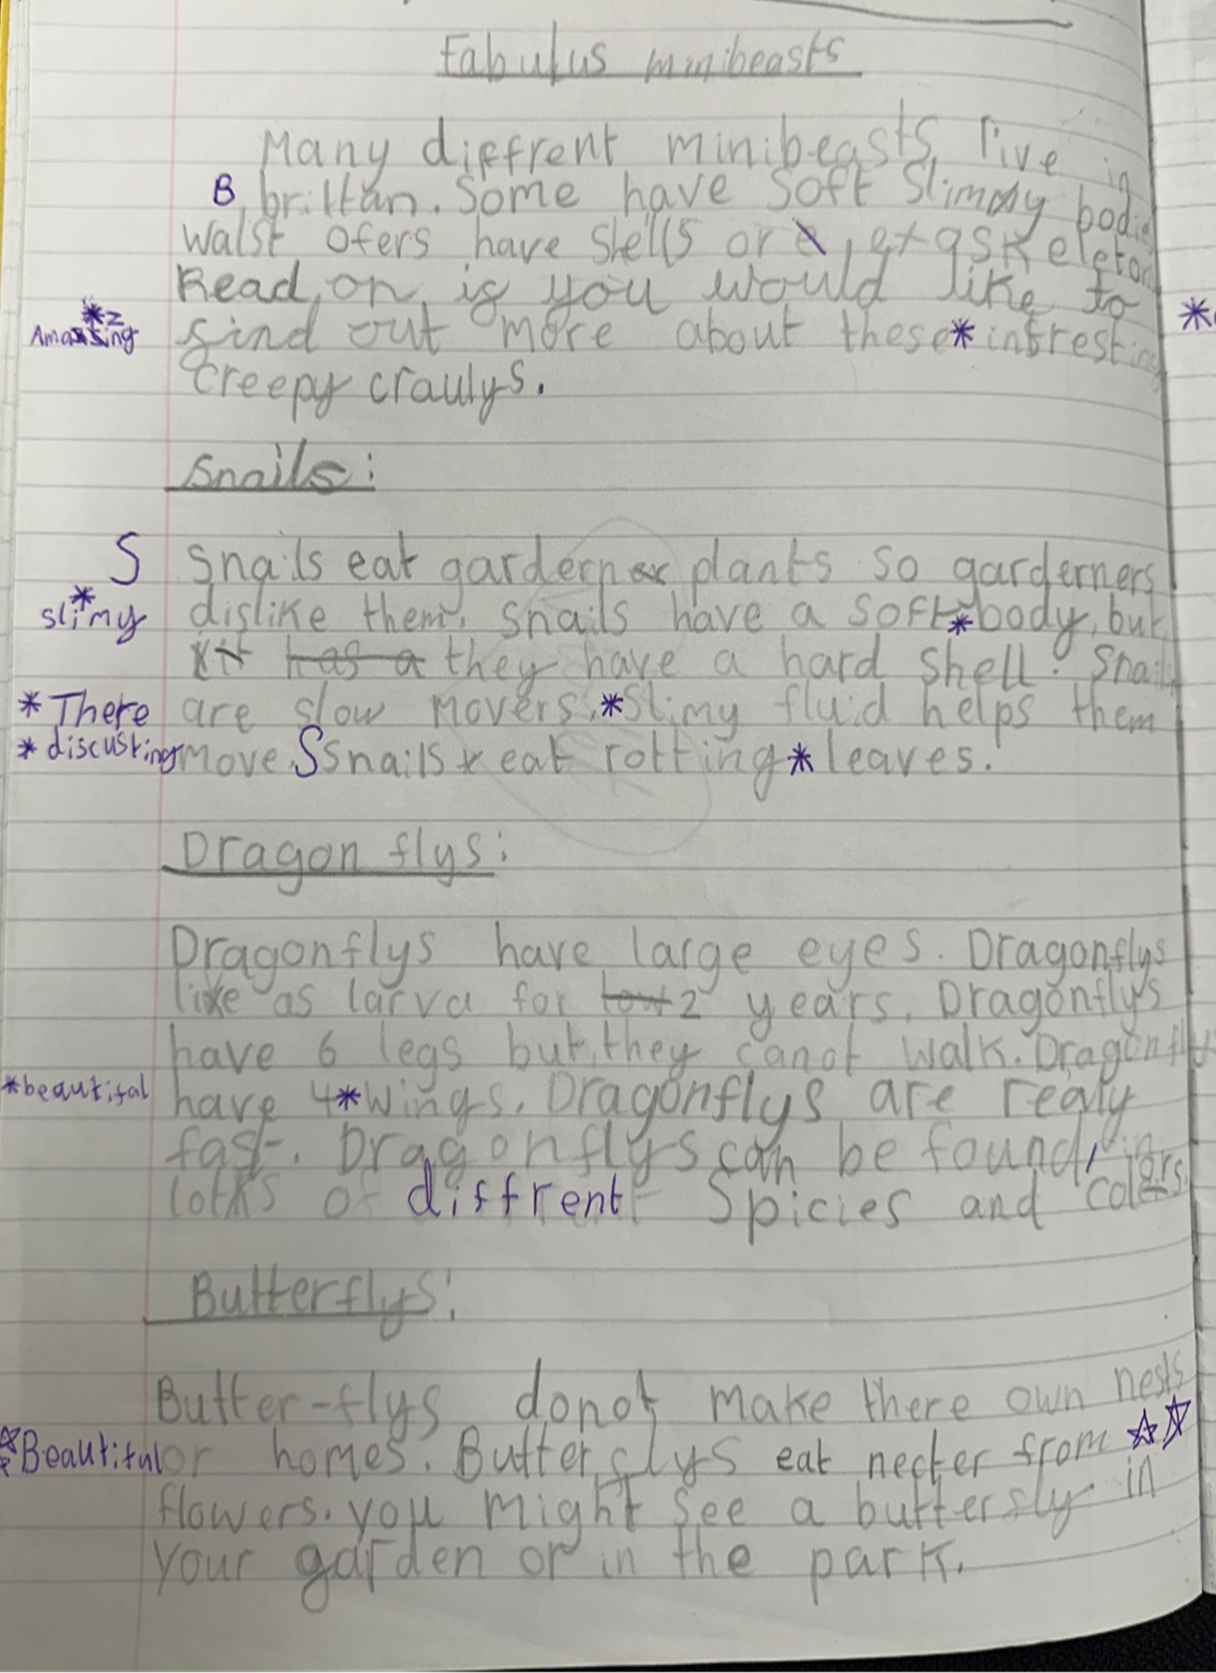 Fabulus minibeasts
Many diffrent minibeasts live in
B brittan. Some have Soft Slimmy bodies
walst ofers have Shells or exaskeleton
Read on if you would like to
*z
Amazing find out more about these* intresting
creepy craulys.
Snails:
S Snails eat gardern plants so garderners
*
slimy dislike them. Snails have a soft*body, but
it has a they have a hard shell. Snails
*There are slow movers. *Slimy fluid helps them
*discusting move. S snails eat rotting*leaves.
Dragon flys:
Dragonflys have large eyes. Dragonflys
live as larva for 2 years. Dragonflys
have 6 legs but they canot walk. Dragonflys
*beautifal have 4*wings. Dragonflys are realy
fast. Dragonflys can be found, in
lots of diffrent Spicies and colers.
Butterflys:
Butter-flys donot make there own nests
*Beautiful or homes. Butterflys eat necter from ☆☆
flowers. you might see a butterfly in
your garden or in the park.